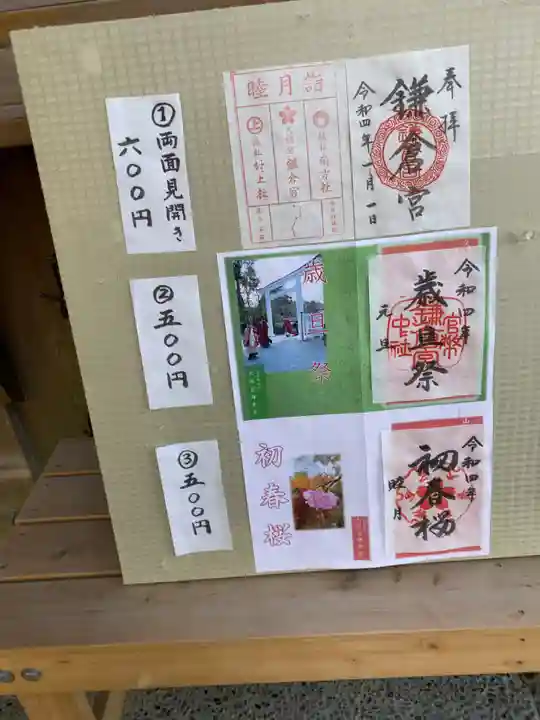 ①両面見開き
六〇〇円
睦月詣
上
村上社
鎌倉宮
南方社
奉拝
鎌倉宮
令和四年一月一日
②五〇〇円
歳旦祭
令和四年
歳旦祭
元旦
鎌倉宮
官幣
中社
③五〇〇円
初春桜
令和四年
初春桜
睦月